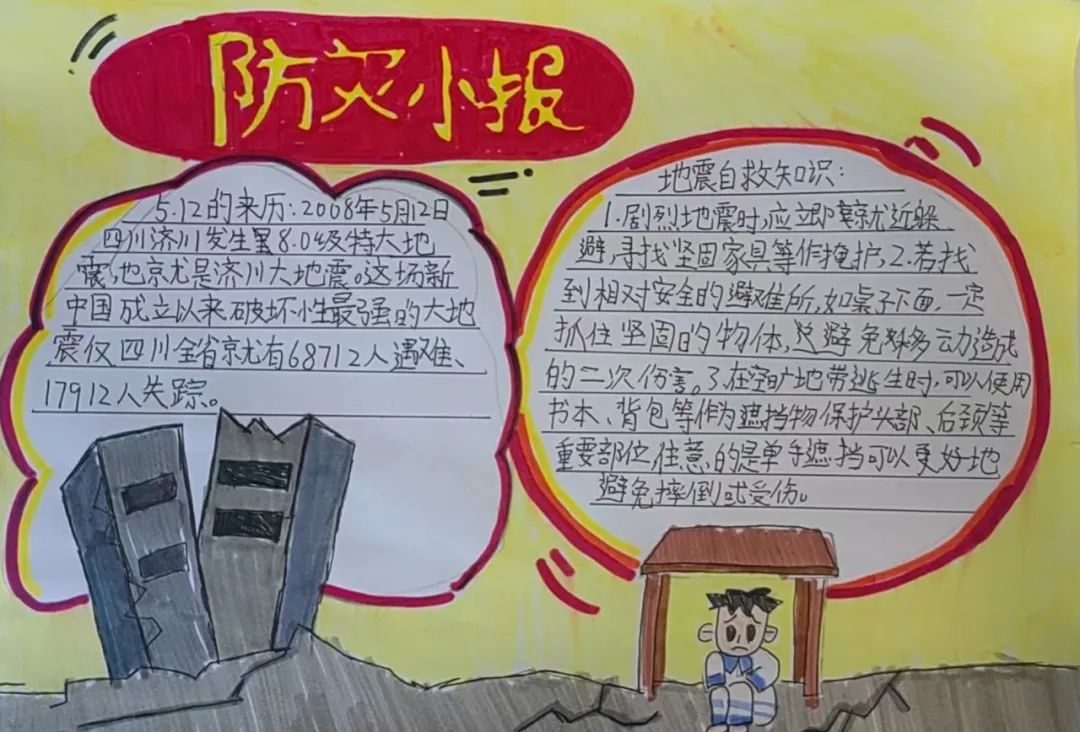 防灾小报
5.12的来历:2008年5月12日
四川济川发生里8.04级特大地
震,也京尤是济川大地震。这场新
中国成立以来破坏性最强的大地
震仅四川全省京尤有68712人遇难、
17912人失踪。
地震自救知识:
1.剧烈地震时,应立即就近躲
避,寻找坚固家具等作掩护,2.若找
到相对安全的避难所,如桌子下面,一定
抓住坚固的物体,避免移动造成
的二次伤害。3.在空旷地带逃生时,可以使用
书本、背包等作为遮挡物保护头部、后颈等
重要部位,住意的是单手遮挡可以更好地
避免摔倒或受伤。